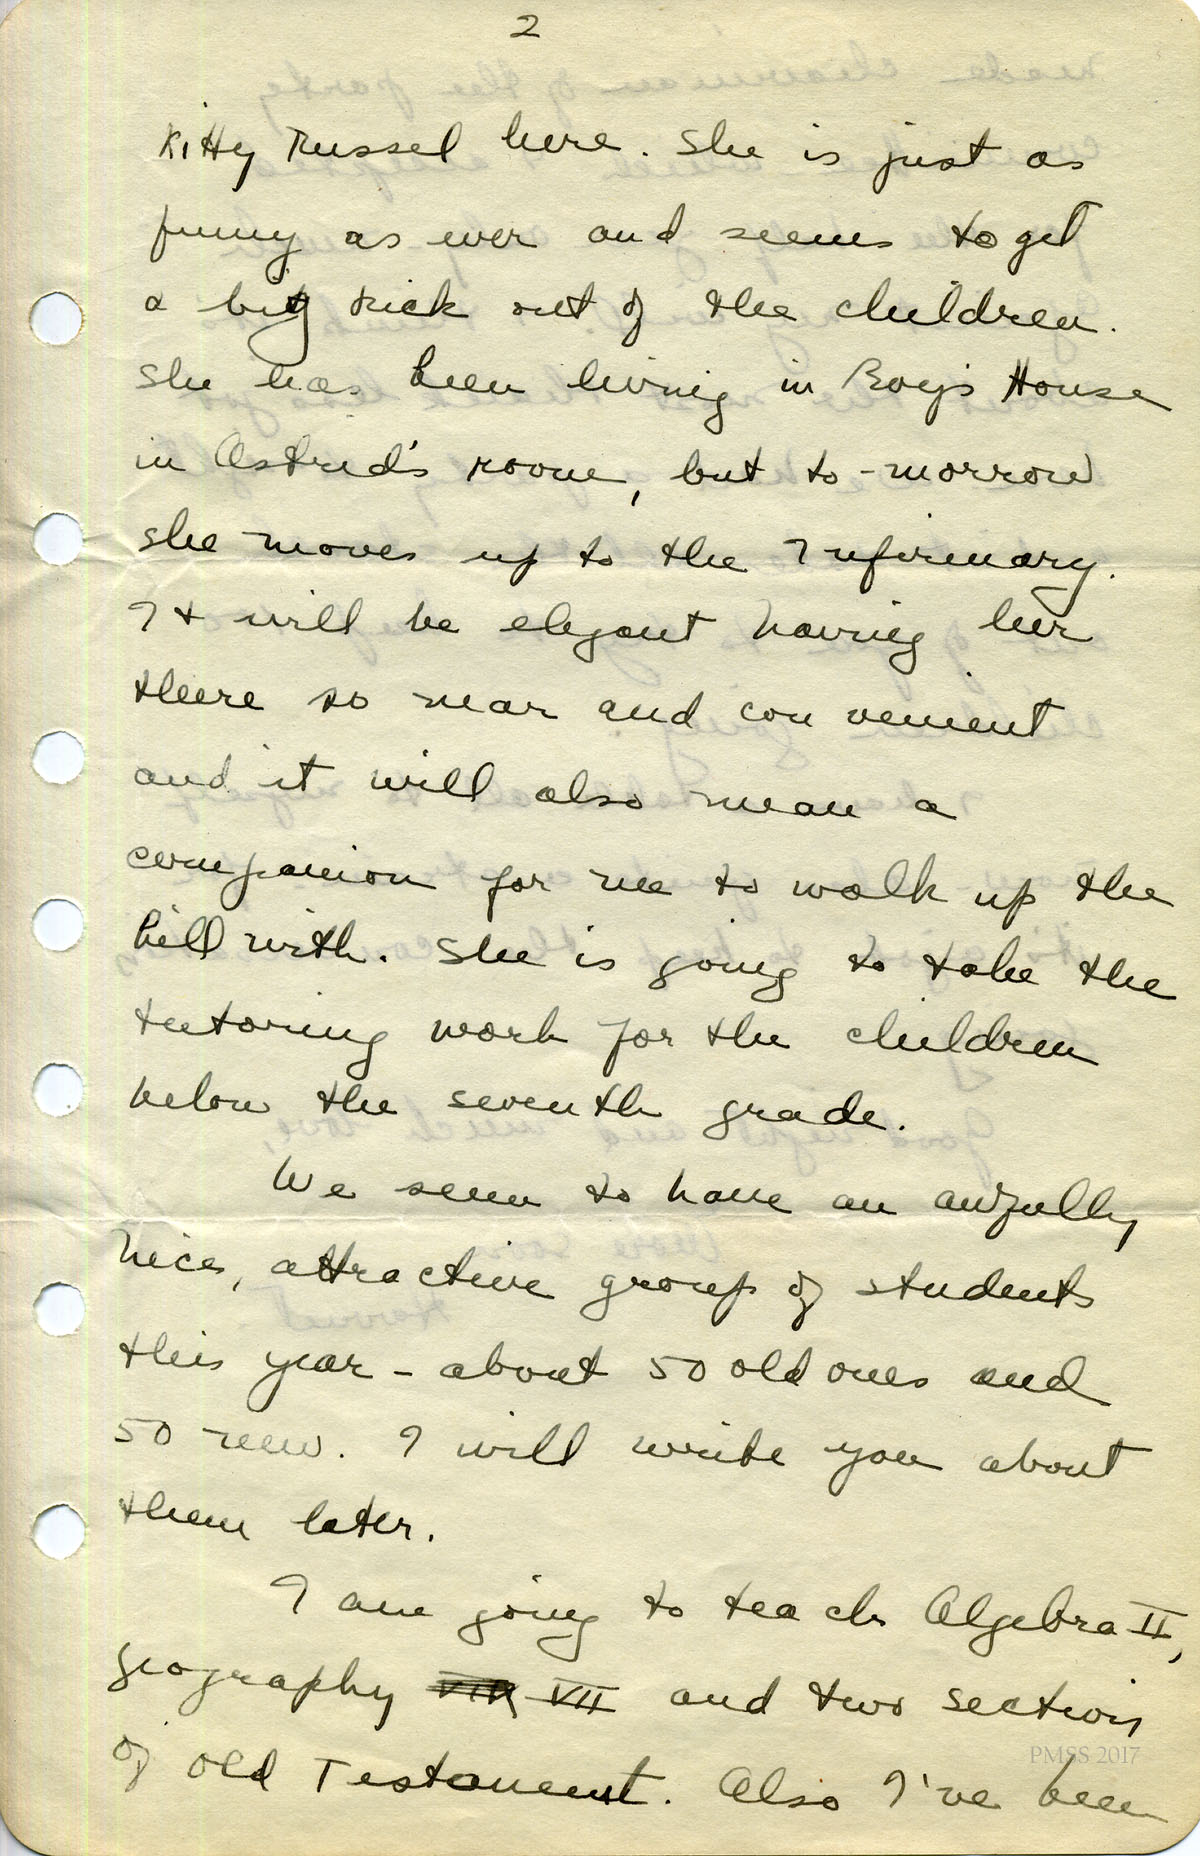 2
Kitty Russel here. She is just as
funny as ever and seems to get
a big kick out of the children.
She has been living in Boy's House
in Astrid's room, but to-morrow
she moves up to the Infirmary.
It will be elegant having her
there so near and convenient
and it will also mean a
companion for me to walk up the
hill with. She is going to take the
tutoring work for the children
below the seventh grade.
We seem to have an awfully
nice, attractive group of students
this year - about 50 old ones and
50 new. I will write you about
them later.
I am going to teach Algebra II,
geography VII and two sections
of Old Testament. Also I've been
PMSS 2017